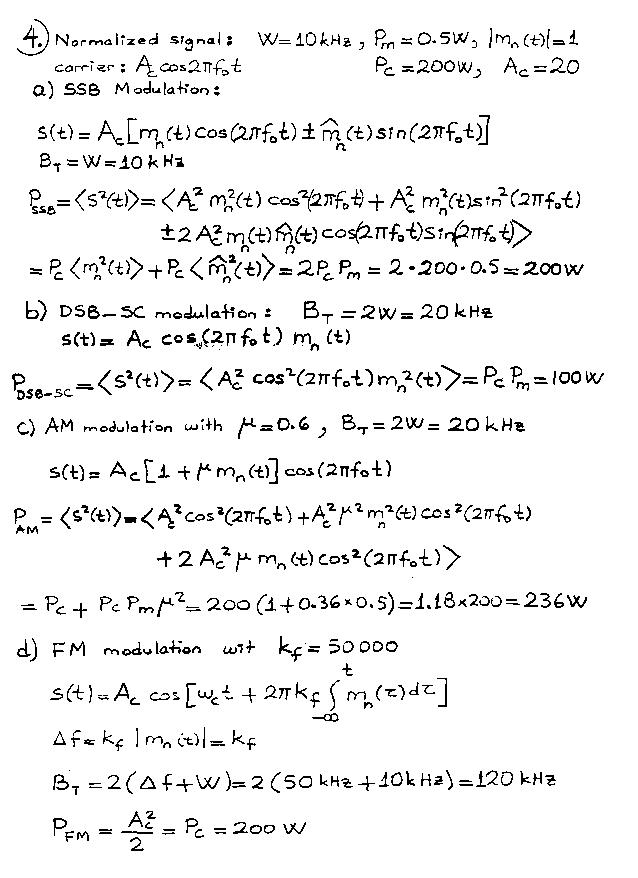 4.) Normalized signal: W=10kHz, Pm=0.5W, |mn(t)|=1
carrier: Ac cos2πf₀t Pc=200W, Ac=20
a) SSB Modulation:
s(t)=Ac[mn(t)cos(2πf₀t)±m̂n(t)sin(2πf₀t)]
BT=W=10kHz
PSSB=⟨s²(t)⟩=⟨Ac² mn²(t) cos²(2πf₀t)+Ac² mn²(t)sin²(2πf₀t)
±2Ac² mn(t)m̂n(t)cos(2πf₀t)sin(2πf₀t)⟩
=Pc⟨mn²(t)⟩+Pc⟨m̂n²(t)⟩=2PcPm=2·200·0.5=200W
b) DSB-SC modulation: BT=2W=20kHz
s(t)=Ac cos(2πf₀t) mn(t)
PDSB-SC=⟨s²(t)⟩=⟨Ac² cos²(2πf₀t)mn²(t)⟩=PcPm=100W
c) AM modulation with μ=0.6, BT=2W=20kHz
s(t)=Ac[1+μmn(t)]cos(2πf₀t)
PAM=⟨s²(t)⟩=⟨Ac²cos²(2πf₀t)+Ac²μ²mn²(t)cos²(2πf₀t)
+2Ac²μmn(t)cos²(2πf₀t)⟩
=Pc+PcPmμ²=200(1+0.36×0.5)=1.18×200=236W
d) FM modulation wit kf=50000
s(t)=Ac cos[ωct+2πkf∫₋∞ᵗ mn(τ)dτ]
Δf=kf|mn(t)|=kf
BT=2(Δf+W)=2(50kHz+10kHz)=120kHz
PFM=Ac²/2=Pc=200 W